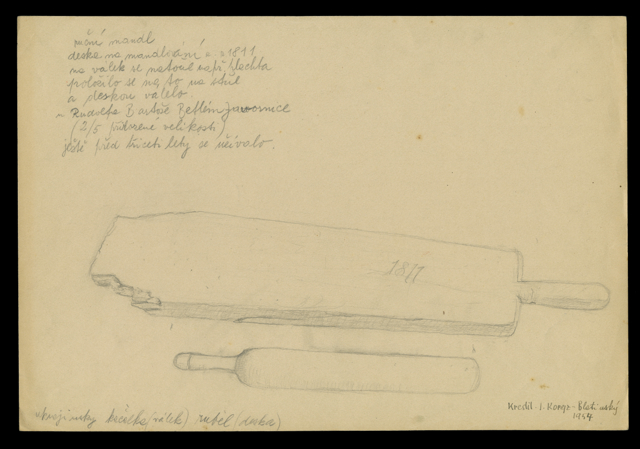 ruční mandl
deska na mandlování z r. 1811
na válek se natočil např. plachta
položilo se na to na stůl
a deskou válelo.
Rudolfa Bartoše Betlém Javornice
(2/5 původní velikosti)
ještě před třiceti lety se užívalo.
1811
válek) rubel (deska)
Kreslil J. Kopr-Blatinský
1954